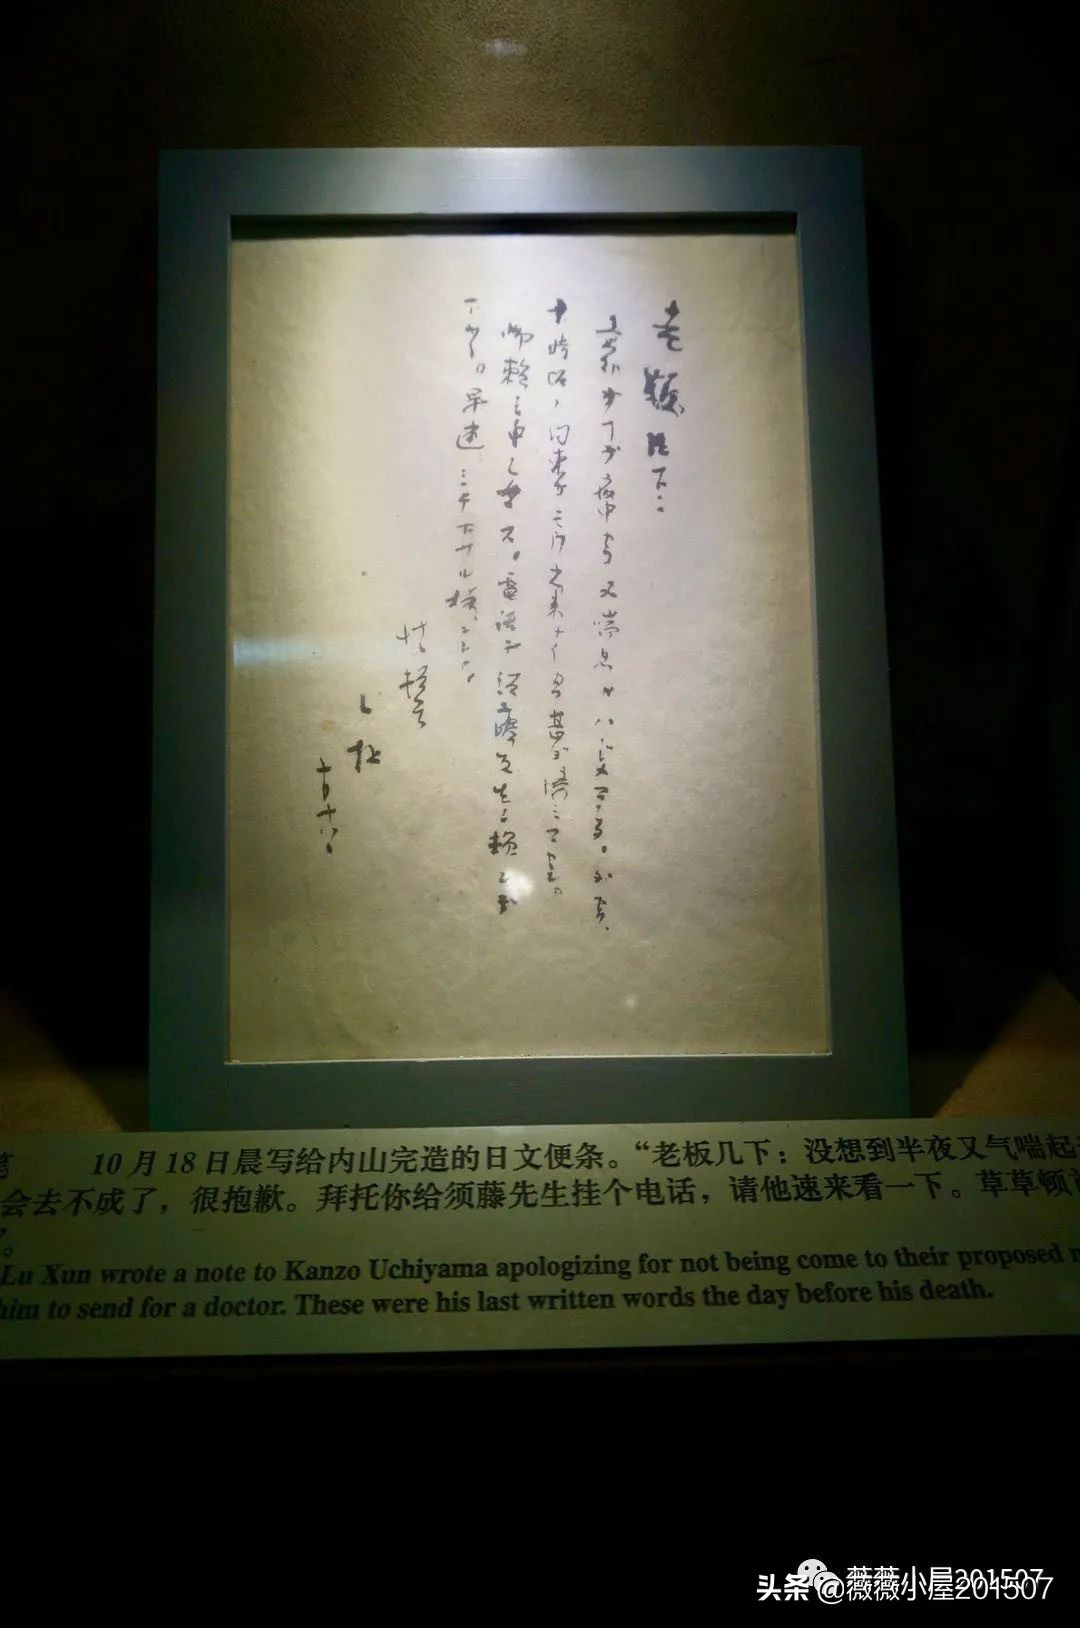 老版几下：
意外ナ事デ夜中カラ又喘息ガハジマッタ。ダカラ、
十時頃ノ約束ガモウ出来ナイカラ甚ダ済ミマセン。
御頼ミ申シマス。電話デ須藤先生ニ頼ンデ
下サイ。早速ミテ下サル様ニト。
頓首
L 拝
十月十八日
笔 10月18日晨写给内山完造的日文便条。“老板几下：没想到半夜又气喘起
会去不成了，很抱歉。拜托你给须藤先生挂个电话，请他速来看一下。草草顿首
”。
Lu Xun wrote a note to Kanzo Uchiyama apologizing for not being come to their proposed
him to send for a doctor. These were his last written words the day before his death.
薇薇小屋201507
头条 @薇薇小屋201507